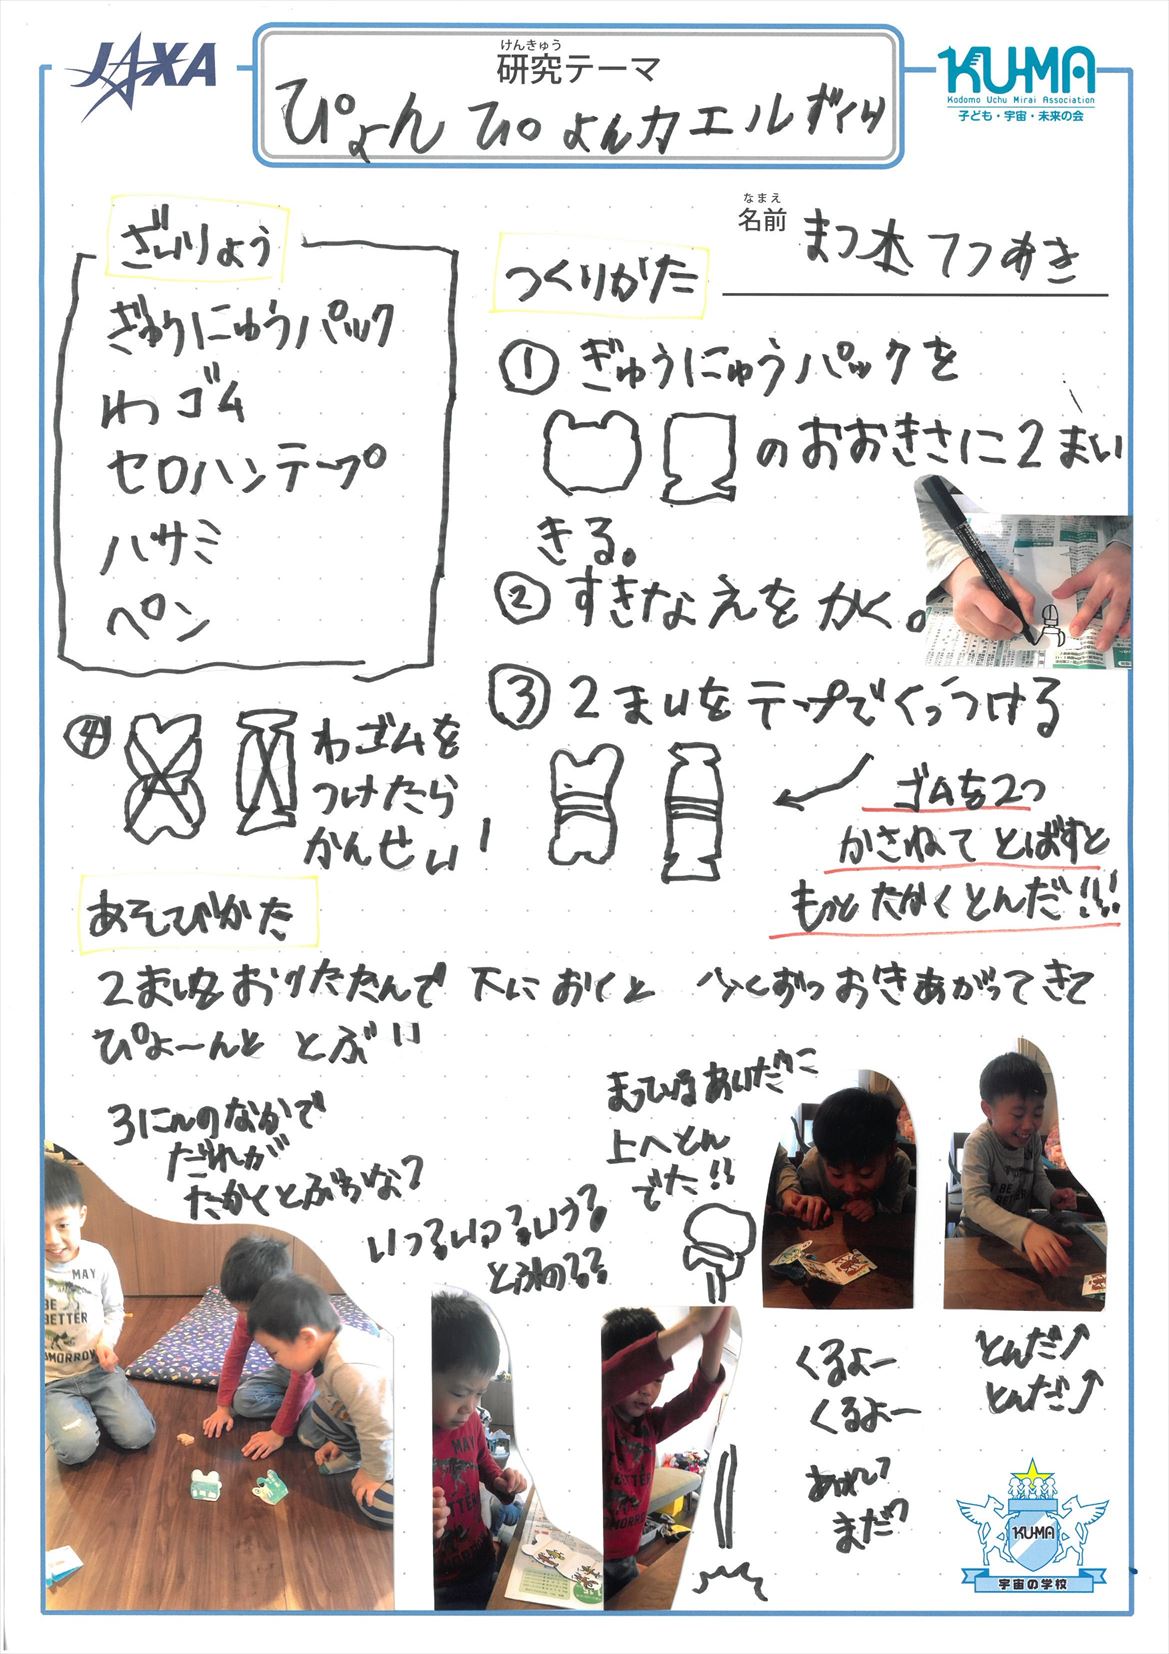 JAXA
けんきゅう
研究テーマ
ぴょんぴょんカエルずくり
KU-MA
Kodomo Uchu Mirai Association
子ども・宇宙・未来の会
なまえ
名前 まつ本てつあき
ざいりょう
ぎゅうにゅうパック
わゴム
セロハンテープ
ハサミ
ペン
つくりかた
① ぎゅうにゅうパックを
のおおきさに2まい
きる。
② すきなえをかく。
③ 2まいをテープでくっつける
ゴムを2つ
かさねてとばすと
もっとたかくとんだ!!!
④ わゴムを
つけたら
かんせい!
あそびかた
2まいをおりたたんで 下におくと 少くずつおきあがってきて
ぴょ〜んと とぶ!!
3にんのなかで
だれが
たかくとぶかな?
いつ?いつ?いつ?
とぶの??
まっているあいだに
上へとん
でた!!
くるよー
くるよー
あれ?
まだ?
とんだ↑
とんだ↑
MAY
BE
BETTER
TOMORROW
MAY
KU-MA
宇宙の学校